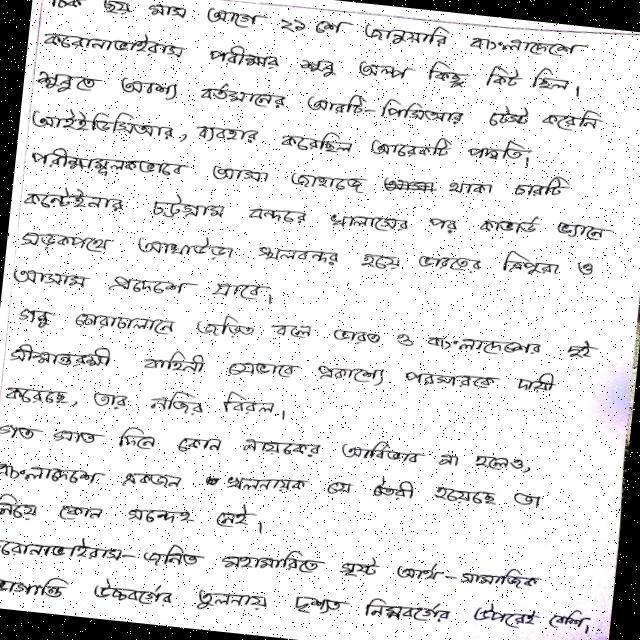 ঠিক ছয় মাস আগে ২১ শে জানুয়ারি বাংলাদেশে
করোনাভাইরাস পরীক্ষার শুরু অল্প কিছু কিট ছিল।
শুরুতে অবশ্য বর্তমানের আরটি-পিসিআর টেস্ট করেনি
আইইডিসিআর, ব্যবহার করেছিল আরেকটি পদ্ধতি।
পরীক্ষামূলকভাবে আসা জাহাজে থাকা চারটি
কন্টেইনার চট্টগ্রাম বন্দরে খালাসের পর কাভার্ড ভ্যানে
সড়কপথে আখাউড়া স্থলবন্দর হয়ে ভারতের ত্রিপুরা ও
আসাম প্রদেশে যাবে।
গরু চোরাচালানে জড়িত বলে ভারত ও বাংলাদেশের দুই
সীমান্তরক্ষী বাহিনী যেভাবে প্রকাশ্যে পরস্পরকে দায়ী
করেছে, তার নজির বিরল।
গত সাত দিনে কোন নায়কের আবির্ভাব না হলেও,
বাংলাদেশে একজন খলনায়ক যে তৈরী হয়েছে তা
নিয়ে কোন সন্দেহ নেই।
করোনাভাইরাস-জনিত মহামারিতে সৃষ্ট আর্থ-সামাজিক
অশান্তি উচ্চবর্গের তুলনায় দৃশ্যত নিম্নবর্গের উপরেই বেশি।